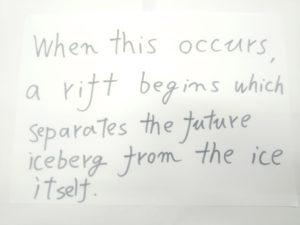 When this occurs,
a rift begins which
separates the future
iceberg from the ice
itself.